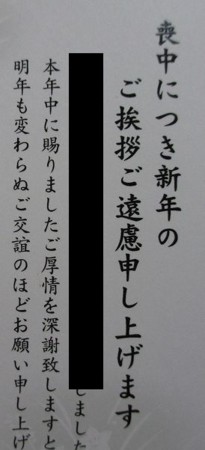 喪中につき新年の
ご挨拶ご遠慮申し上げます
しました
本年中に賜りましたご厚情を深謝致しますと
明年も変わらぬご交誼のほどお願い申し上げ